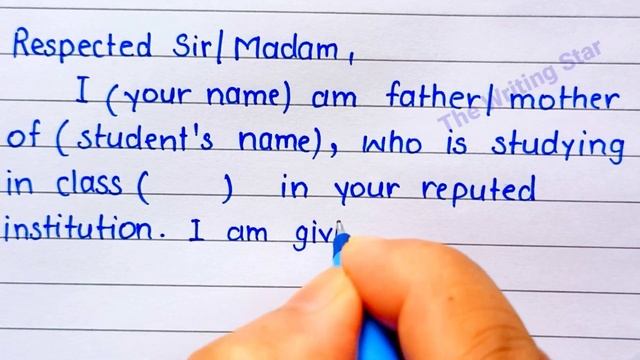 Respected Sir/Madam,
I (your name) am father/mother
of (student's name), who is studying
in class (      ) in your reputed
institution. I am givi
The Writing Star